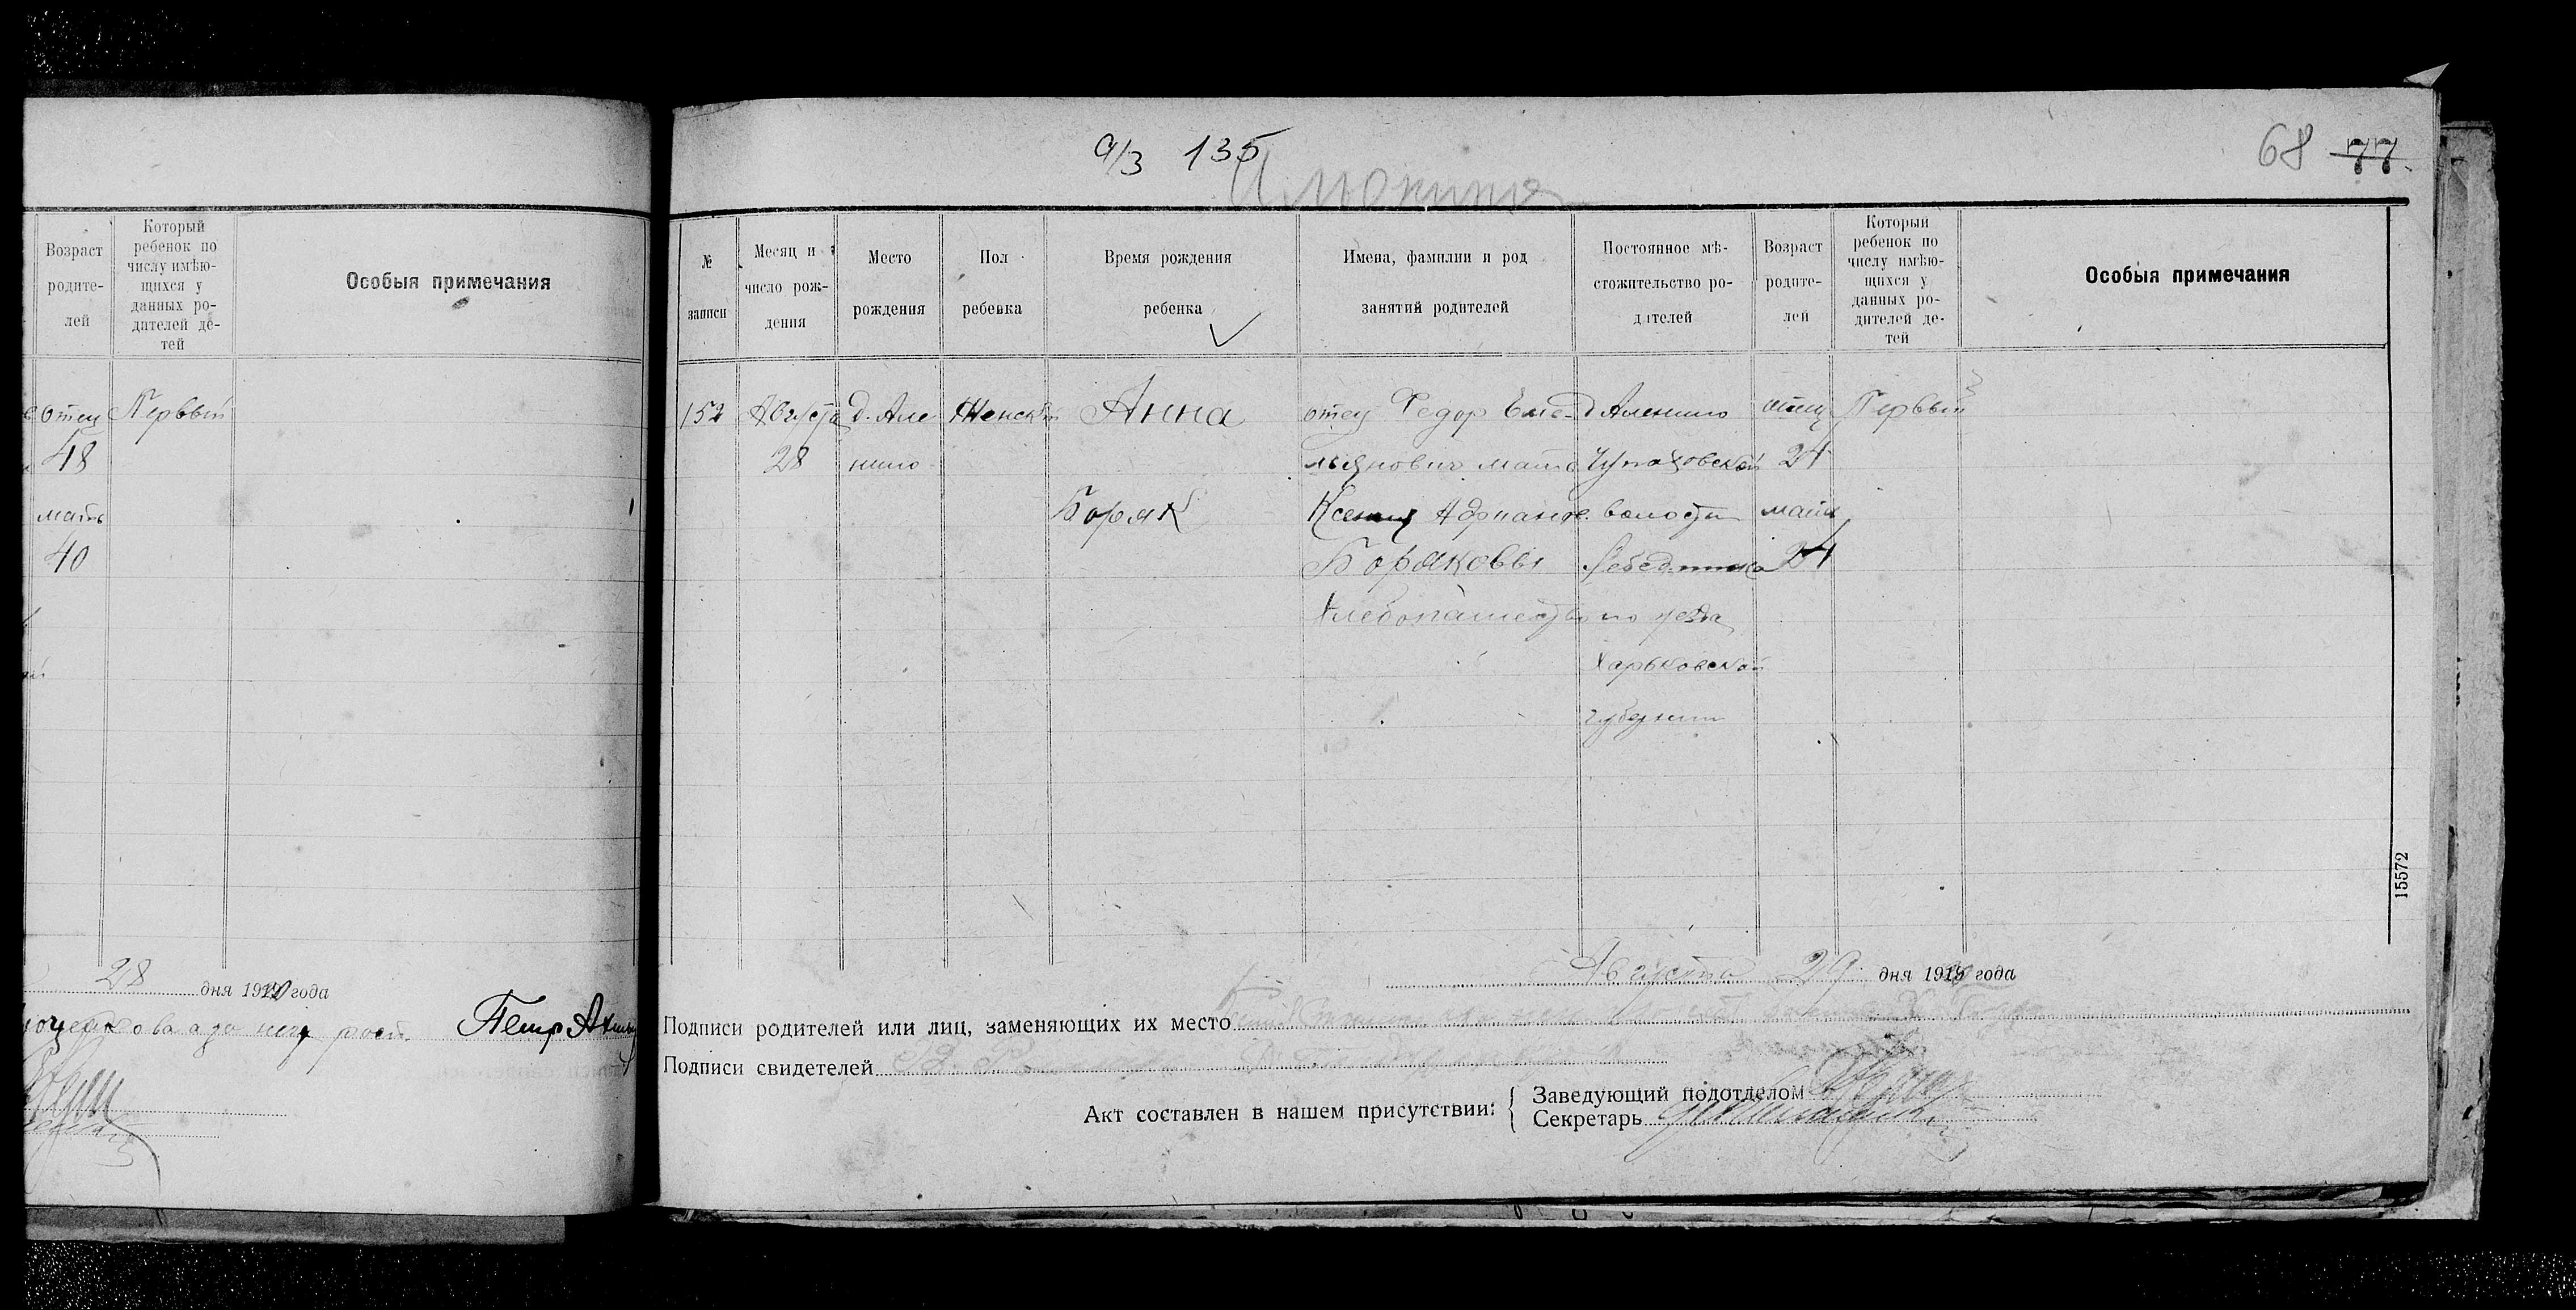 Возраст
родите-
лей
Который
ребенок по
числу имѣю-
щихся у
данных ро-
дителей де-
тей
Особыя примечания
отец
Первый
48
мать
40
28 дня 19 года
Петр
а/з 135
68 77
№
записи
Месяц и
число рож-
дения
Место
рождения
Пол
ребенка
Время рождения
ребенка
Имена, фамилии и род
занятий родителей
Постоянное мѣ-
стожительство ро-
дителей
Возраст
родите-
лей
Который
ребенок по
числу имѣю-
щихся у
данных ро-
дителей де-
тей
Особыя примечания
152
Августа
28
д. Але
нино
Женский
Анна
Боряк
отец Федор Еме-
льянович мать
Ксения Адриянов.
Боряковы
Хлебопашество
д Аленино
Чупаховской
волости
Лебединско
го уезда
Харьковской
губернии
отец
24
мать
24
Первый
15572
Августа 29 дня 19 года
Подписи родителей или лиц, заменяющих их место
Подписи свидетелей
Акт составлен в нашем присутствии:
Заведующий подотделом
Секретарь